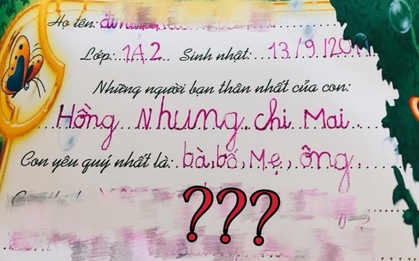 Họ tên:
Lớp: 1A2. Sinh nhật: 13/9/20
Những người bạn thân nhất của con:
Hồng Nhung, chi Mai
Con yêu quý nhất là: bà, bố, Mẹ, ông
???